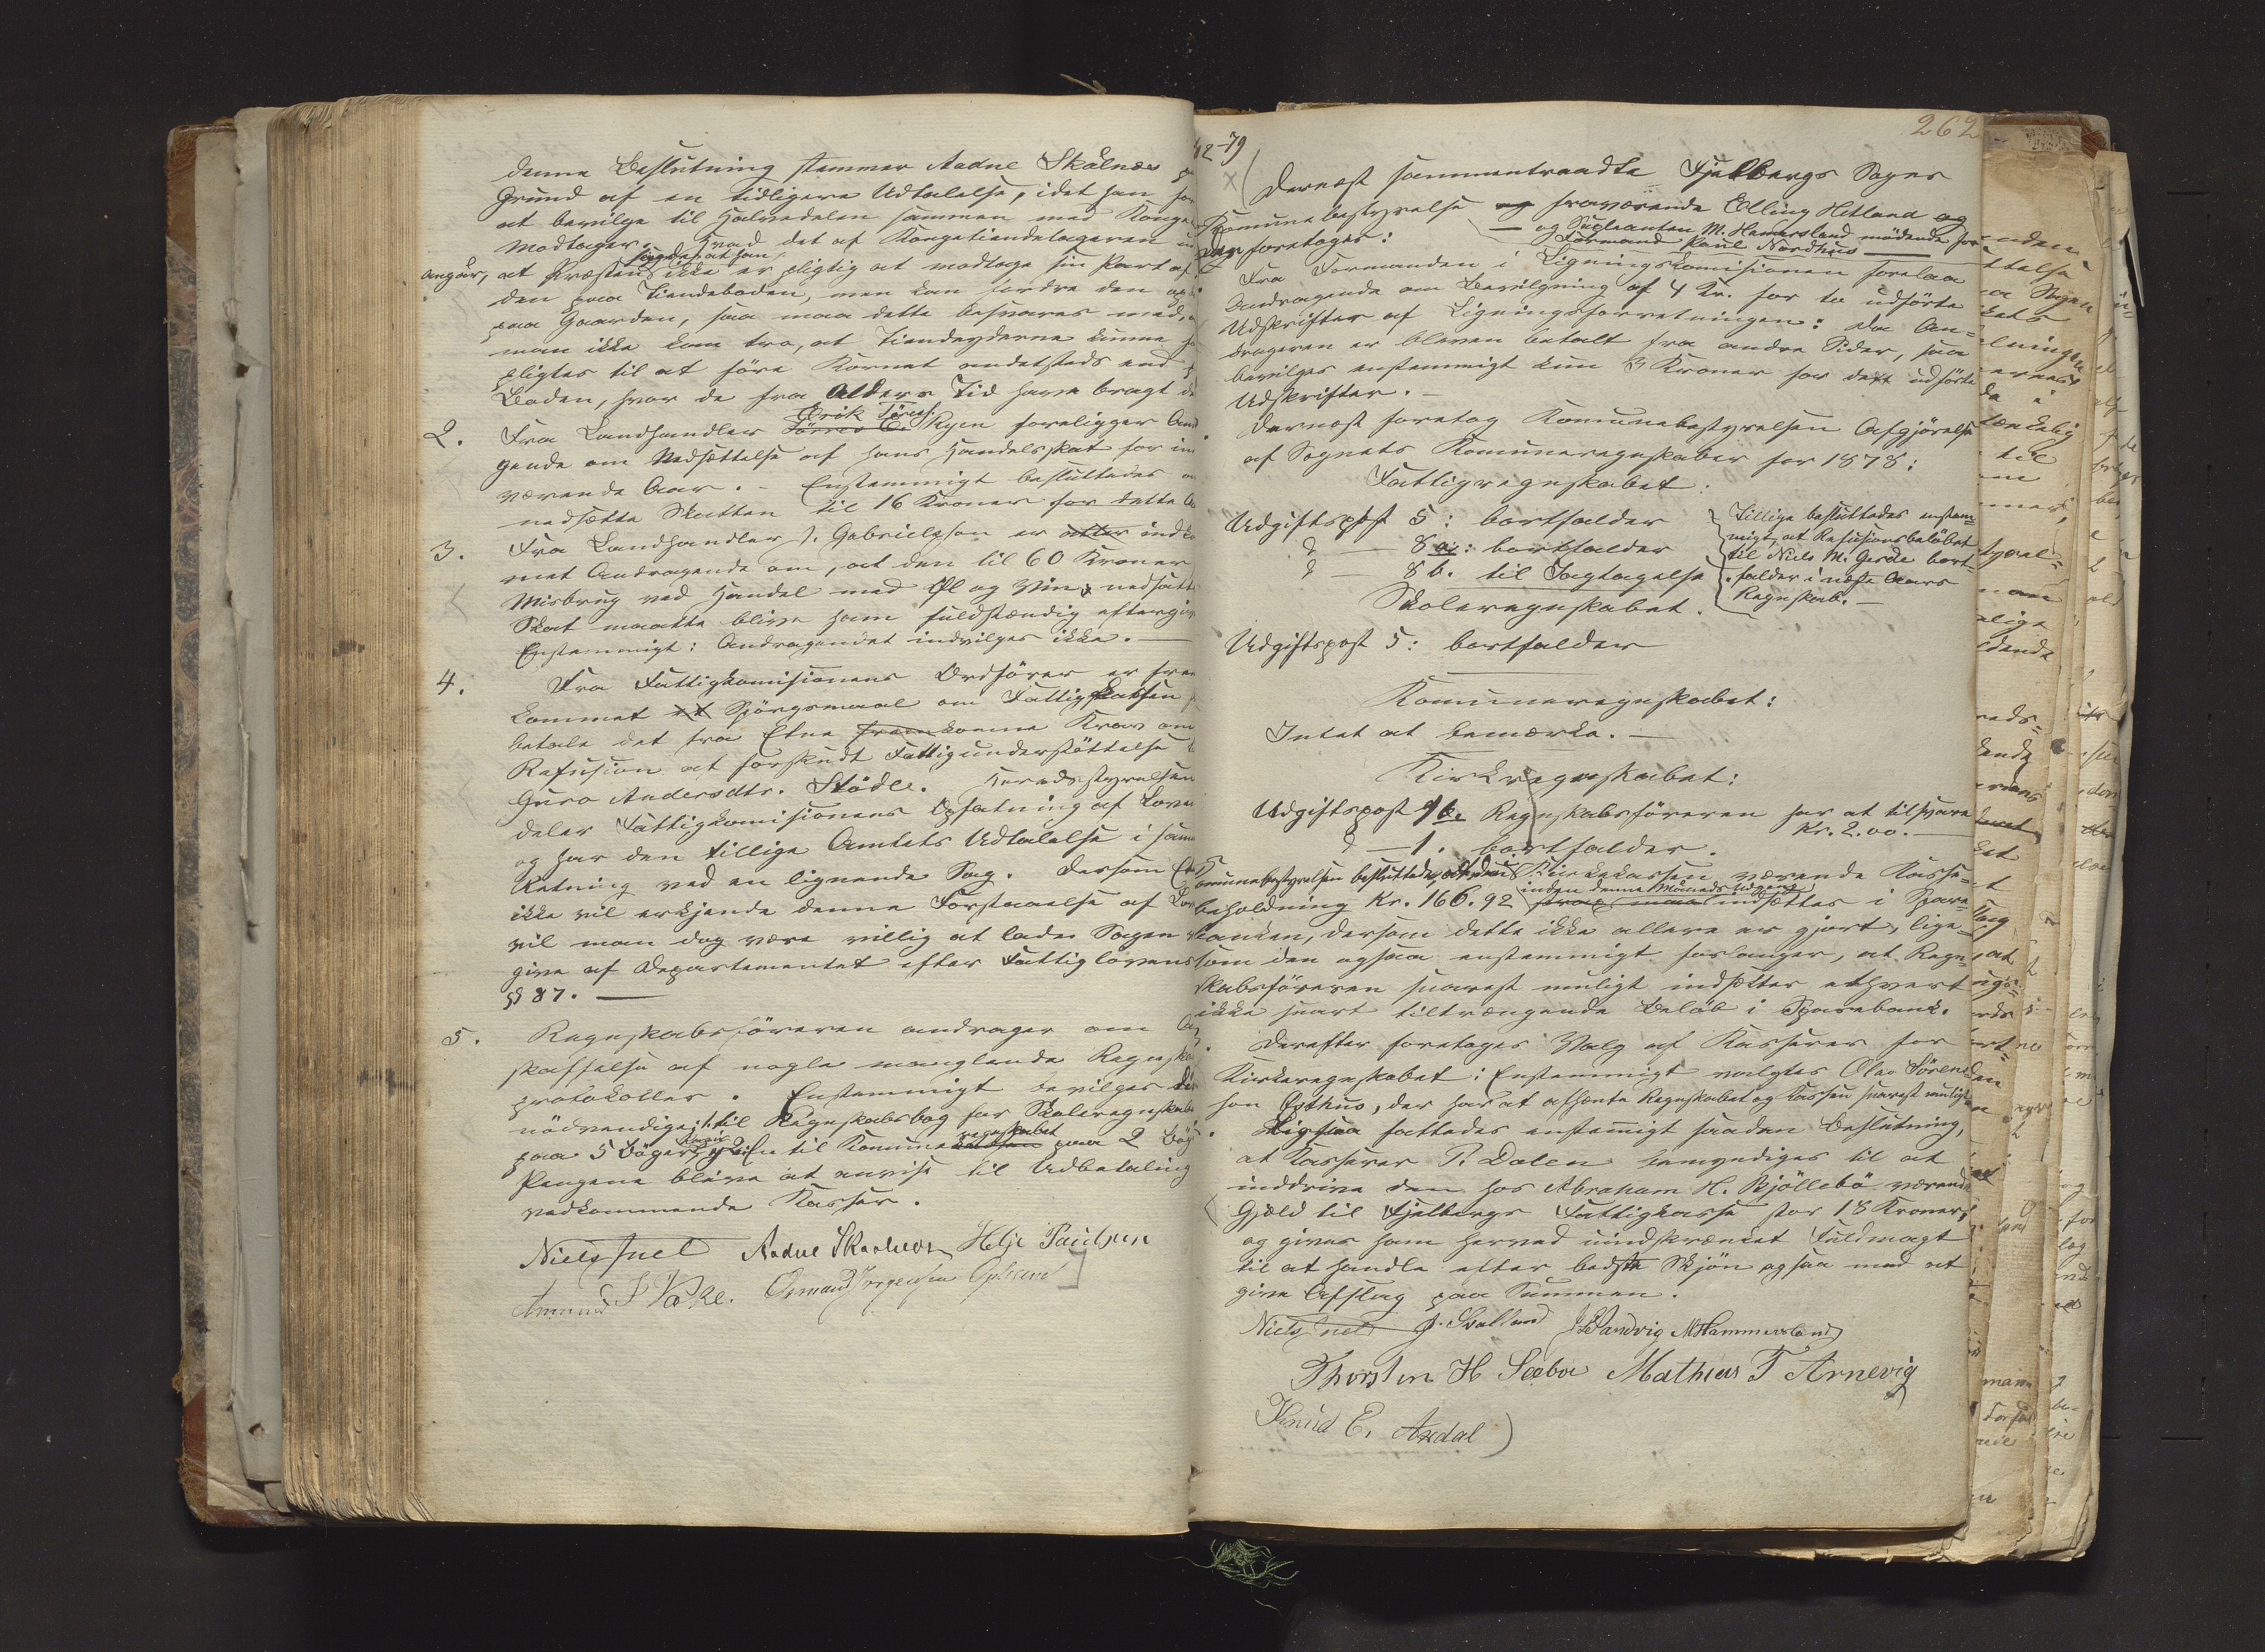 denne Beslutning stemmer Aadne Skålnes
Grund af en tidligere Udtalelse, idet han
at bevilge til Halvedelen sammen med
Modtager. Hvad det af Kongetiendetageren
sagdes at han
angår, at Præsten ikke er pligtig at modtage sin Part af
den paa Tiendeboden, men kan fordre den
paa Gaarden, saa maa dette besvares med,
man ikke kan tro, at Tiendeyderne kunne
pligtes til at føre Kornet andetsteds end
Boden, hvor de fra Alders Tid have bragt
Erik Tøres.
2. Fra Landhandler Tørres E. Ryen foreligger
gende om Nedsættelse af hans Handelsskat for
værende Aar. - Enstemmigt besluttedes
nedsætte Skatten til 16 Kroner for dette
3. Fra Landhandler J. Gabrielsson er atter
met Andragende om, at den til 60 Kroner
Misbrug ved Handel med Øl og Vin, nedsatte
Skat maatte blive ham fuldstændig
Enstemmigt: Andragendet indvilges ikke. —
4. Fra Fattigkomisionens Ordfører er
kommet Spørgsmaal om Fattigkassen
betale det fra Etne fremkomne Krav om
Refusion at forskudt Fattigunderstøttelse
Guro Andersdtr. Stødle. Heredsstyrelsen
deler Fattigkomisionens Opfatning af Loven
og har den tillige Amtets Udtalelse i
Retning ved en lignende Sag. Dersom
ikke vil erkjende denne Forstaaelse af
vil man dog være villig at lade Sagen
give af Departementet efter Fattiglovens
§§ 87. —
5. Regnskabsføreren andrager om
skaffelse af nogle manglende Regnskabs
protokoller. Enstemmigt bevilges
nødvendige: til Regnskabsbog for Skoleregnskabet
regnskabet
paa 5 Bøger, en til Komune paa 2
Pengene blive at anvise til Udbetaling
vedkommende Kasser.
Niels Juel Aadne Skaalnes Helje Paulsen
Amund S Vake. Osmund Jørgensen
12-79
262
X ( Dernæst sammentraadte Fjelbergs Sogns
Komunebestyrelse og fraværende Elling Hetland og
— og Supleanten M. Hamersland mødende for
Formand Paul Nordhus —
Der foretoges:
Fra Formanden i Ligningskomisionen forelaa
Andragende om Bevilgning af 4 Kr. for to udførte
Udskrifter af Ligningsforretningen: Da An=
drageren er bleven betalt fra andre Sider, saa
bevilges enstemmigt kun 3 Kroner for de udførte
Udskrifter. —
Dernæst foretog Komunebestyrelsen Afgjørelse
af Sognets Komuneregnskaber for 1878:
Fattigregnskabet:
Udgiftspost 5: bortfalder
— 8 a: bortfalder
— 8 b. til Iagtagelse
Tillige besluttedes enstem=
migt, at Refusionsbeløbet
til Niels M. Gerde bort=
falder i næste Aars
Regnskab. —
Skoleregnskabet.
Udgiftspost 5: bortfalder
Komuneregnskabet:
Intet at bemærke. —
Kirkeregnskabet:
Udgiftspost 1 b. Regnskabsføreren har at tilsvare
Kr. 2.00. —
— 1. bortfalder.
Komunebestyrelsen besluttede, at den i Kirkekassen værende Kasse=
inden denne Maaneds Udgang
beholdning Kr. 166.92 strax maa indsættes i Spare=
banken, dersom dette ikke allere er gjort, lige=
som den ogsaa enstemmigt forlanger, at Regn=
skabsføreren snarest muligt indsætter ethvert
ikke snart tiltrængende Beløb i Sparebank.
Derefter foretoges Valg af Kasserer for
Kirkeregnskabet: Enstemmigt valgtes Olav Søren
son Østhus, der har at afhente Regnskabet og Kassen snarest muligt
Ligesaa fattedes enstemigt saadan Beslutning,
at Kasserer P. Dalen bemyndiges til at
inddrive den hos Abraham H. Kjøllebø værende
Gjæld til Fjelbergs Fattigkasse stor 18 Kroner,
og gives ham herved uindskrænket Fuldmagt
til at handle efter bedste Skjøn ogsaa med at
give Afslag paa Summen.
Niels Juel J. Svalland Sandvig M Hammersland
Thorsten H Sæbøe Mathias T Arnevig
Knud E. Axdal )